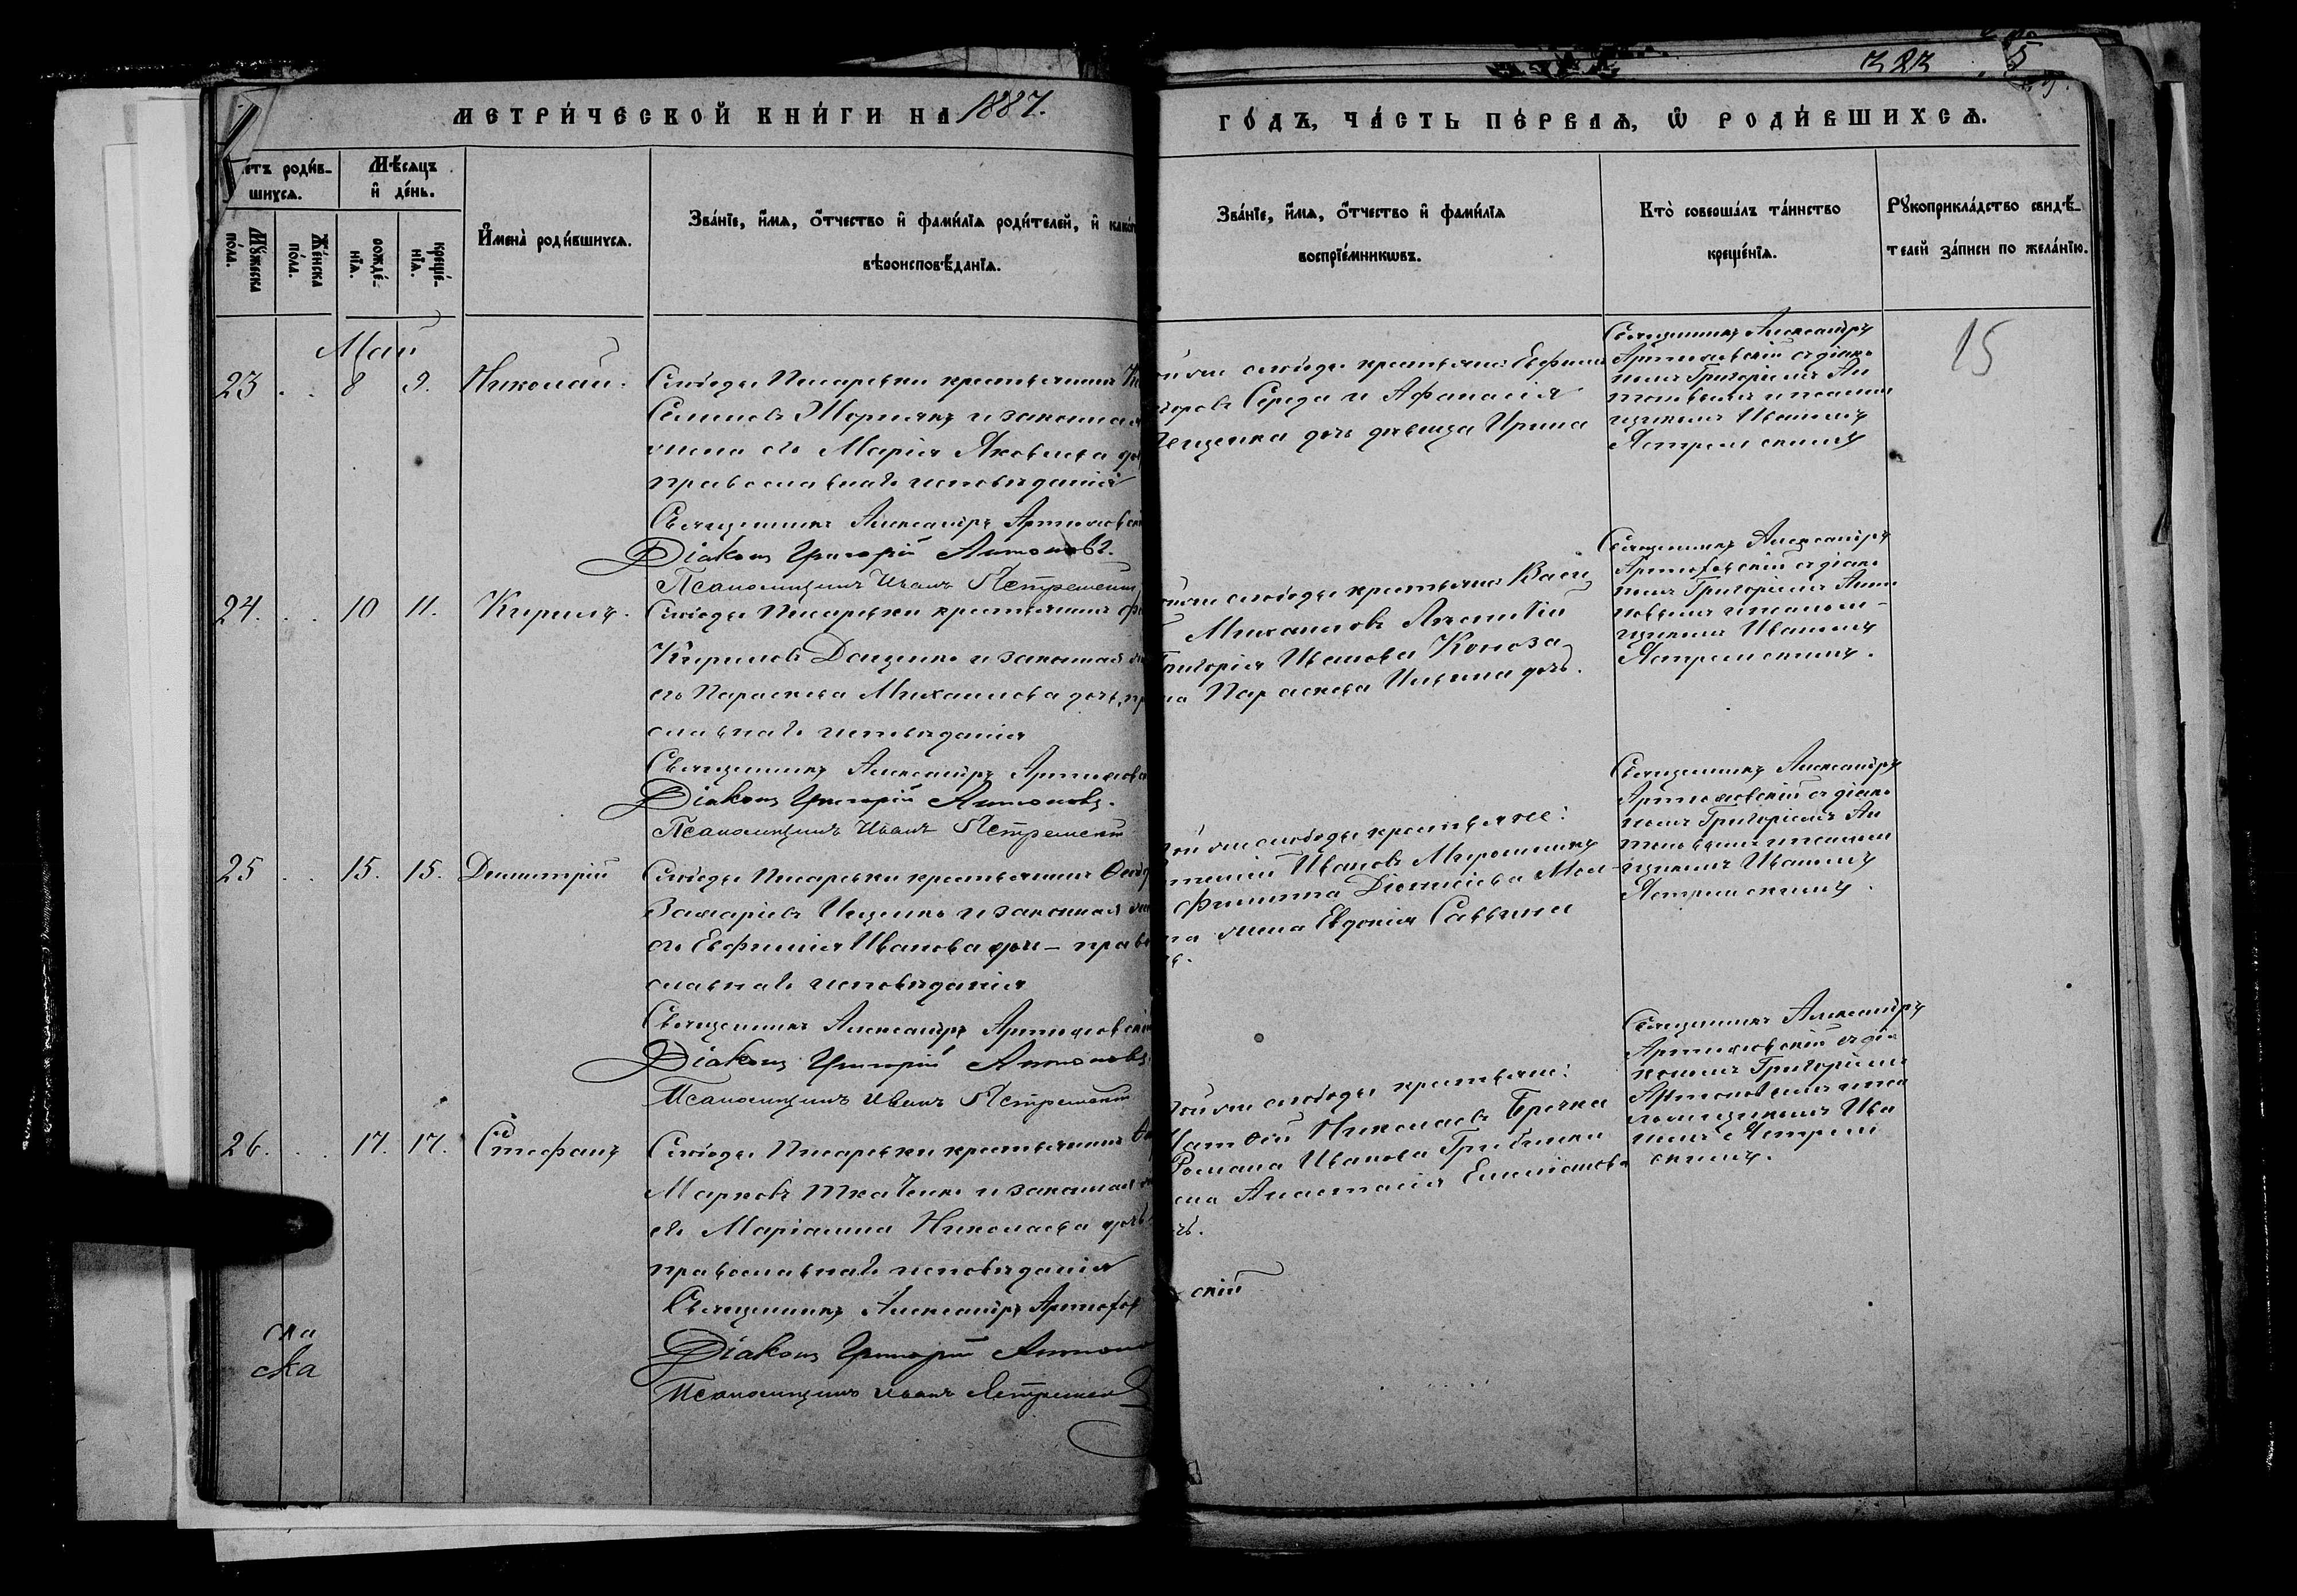 МЕТРИ́ЧЕСКОЙ КНИ́ГИ НА 1887.
ГО́ДЪ, ЧА́СТЬ ПЕ́РВАѦ, Ѡ РОДИ́ВШИХСѦ.
323
етъ роди́в-
шихсѧ.
Мѣ́сѧцъ
и де́нь.
Мꙋ́жеска по́ла.
Же́нска по́ла.
рожде́-нїѧ.
креще́-нїѧ.
И҆мена̀ роди́вшихсѧ.
Зва́нїе, и҆́мѧ, ѻ҆́тчество и҆ фами́лїѧ роди́телей, и҆ како́г
вѣроисповѣ́данїѧ.
Зва́нїе, и҆́мѧ, ѻ҆́тчество и҆ фами́лїѧ
воспрїе́мникѡвъ.
Кто̀ соверша́лъ та́инство
креще́нїѧ.
Рꙋкоприкла́дство свидѣ́-
телей за́писи по жела́нїю.
Май
23 . . 8 9. Николай.
Слободы Писаревки крестьянинъ
Семеновъ Жорнякъ и законная
жена его Марія Яковлева доч
православнаго исповѣданія
Священникъ Александръ Артюховск
Діаконъ Григорій Антоновъ.
Псаломщикъ Иванъ Ястремскій
слободы крестьяне: Евфим
Середа и Афанасія
Пещенка дочь дѣвица Ирина
Священникъ Александръ
Артюховскій съ діако
номъ Григоріемъ Ан
тоновымъ и псалом
щикомъ Иваномъ
Ястремскимъ
15
24. . . 10 11. Кирилъ.
Слободы Писаревки крестьянинъ
Кириловъ Доценко и законная
его Параскева Михаилова дочь, пр
славнаго исповѣданія
Священникъ Александръ Артюховс
Діаконъ Григорій Антоновъ.
Псаломщикъ Иванъ Ястремскій
слободы крестьяне: Васи
Михаиловъ
Григорія Иванова Коноза
на Параскева Ильина дочь.
Священникъ Александръ
Артюховскій съ діако
номъ Григоріемъ Анто
новымъ и псалом-
щикомъ Иваномъ
Ястремскимъ.
25 . . 15. 15. Димитрій
Слободы Писаревки крестьянинъ Ѳеод
Захаріевъ Ищенко и законная же
его Евфимія Иванова дочь - прав
славнаго исповѣданія
Священникъ Александръ Артюховскій
Діаконъ Григорій Антоновъ.
Псаломщикъ Иванъ Ястремскій
слободы крестьяне:
Ивановъ Мирошникъ
Филиппа Діонисіева Мол-
на жена Евдокія Саввина
Священникъ Александръ
Артюховскій съ діако
номъ Григоріемъ Ан
тоновымъ и псалом
щикомъ Иваномъ
Ястремскимъ.
26. . . 17. 17. Стефанъ
Слободы Писаревки крестьянинъ
Марковъ Ткаченко и законная
его Маріанна Николаева дочь
православнаго исповѣданія
Священникъ Александръ Артюхов
Діаконъ Григорій Антоно
Псаломщикъ Иванъ Ястремск
слободы крестьяне:
Матѳей Николаевъ
Романа Иванова
Анастасія Емиліанова
чь.
скій
Священникъ Александръ
Артюховскій съ діа
кономъ Григоріемъ
Антоновымъ и пса
ломщикомъ Ива
номъ Ястрем
скимъ.